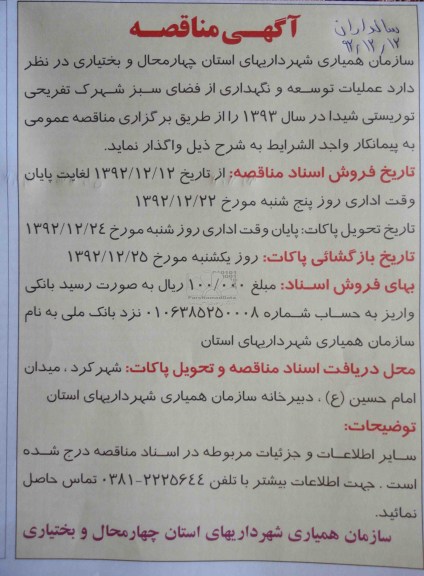 آگهی مناقصه
سالداران
۹۲/۱۲/۱۲
سازمان همیاری شهرداریهای استان چهارمحال و بختیاری در نظر
دارد عملیات توسعه و نگهداری از فضای سبز شهرک تفریحی
توریستی شیدا در سال ۱۳۹۳ را از طریق برگزاری مناقصه عمومی
به پیمانکار واجد الشرایط به شرح ذیل واگذار نماید.
تاریخ فروش اسناد مناقصه: از تاریخ ۱۳۹۲/۱۲/۱۲ لغایت پایان
وقت اداری روز پنج شنبه مورخ ۱۳۹۲/۱۲/۲۲
تاریخ تحویل پاکات: پایان وقت اداری روز شنبه مورخ ۱۳۹۲/۱۲/۲۴
تاریخ بازگشائی پاکات: روز یکشنبه مورخ ۱۳۹۲/۱۲/۲۵
بهای فروش اسناد: مبلغ ۱۰۰/۰۰۰ ریال به صورت رسید بانکی
واریز به حساب شماره ۰۱۰۶۳۸۵۲۵۰۰۰۸ نزد بانک ملی به نام
سازمان همیاری شهرداریهای استان
محل دریافت اسناد مناقصه و تحویل پاکات: شهرکرد ، میدان
امام حسین (ع) ، دبیرخانه سازمان همیاری شهرداریهای استان
توضیحات:
سایر اطلاعات و جزئیات مربوطه در اسناد مناقصه درج شده
است . جهت اطلاعات بیشتر با تلفن ۲۲۲۵۶۴۴-۰۳۸۱ تماس حاصل
نمائید.
سازمان همیاری شهرداریهای استان چهارمحال و بختیاری